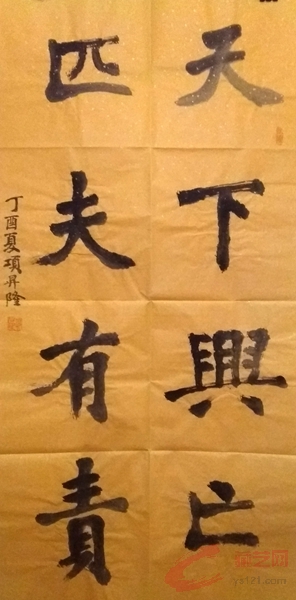 天下興亡
匹夫有責
丁酉夏項昇隆
ys121.com